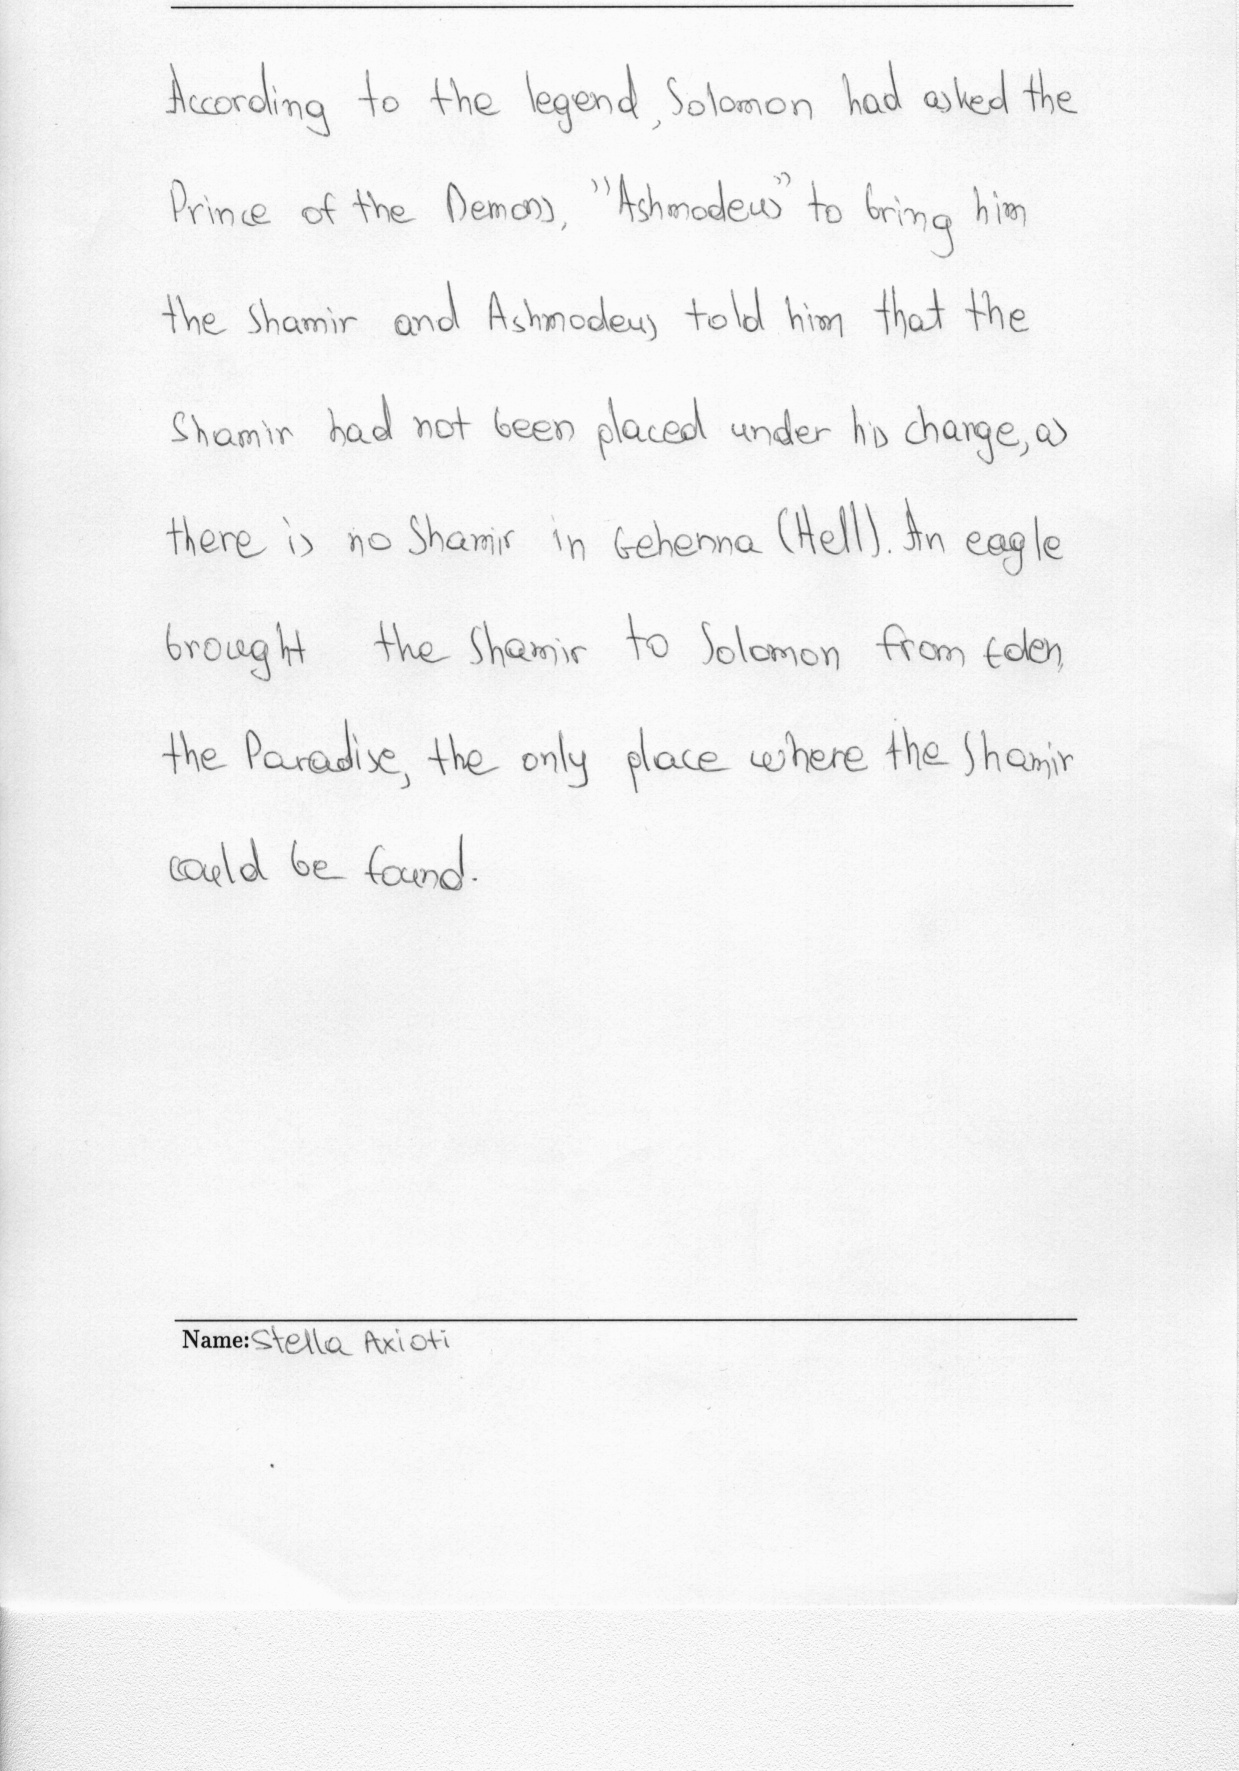 According to the legend, Solomon had asked the
Prince of the Demons, "Ashmodeus" to bring him
the Shamir and Ashmodeus told him that the
Shamir had not been placed under his charge, as
there is no Shamir in Gehenna (Hell). An eagle
brought the Shamir to Solomon from Eden,
the Paradise, the only place where the Shamir
could be found.
Name: Stella Axioti